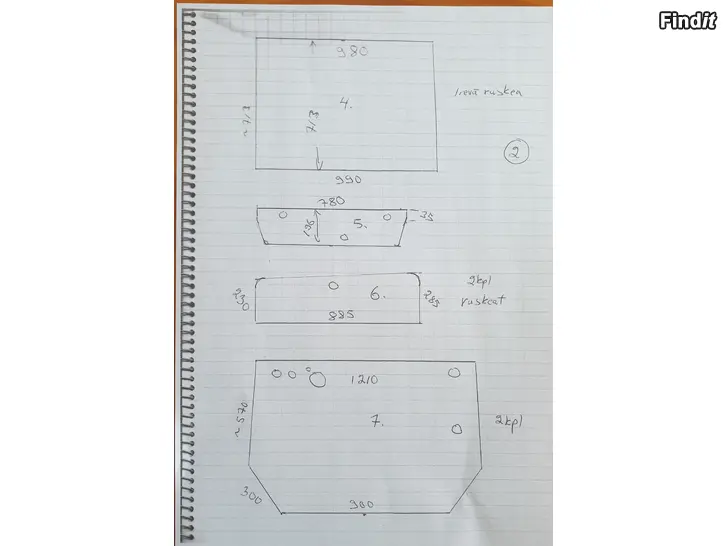 Findit
980
4.
ruskea
~713
713
2
990
780
35
196
5.
2kpl
230
6.
283
ruskeat
885
1210
~570
7.
2kpl
300
900